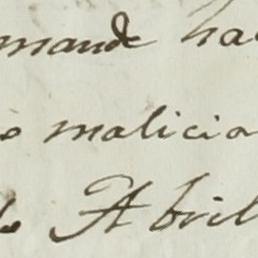 mande ha
o malicia
do Abril